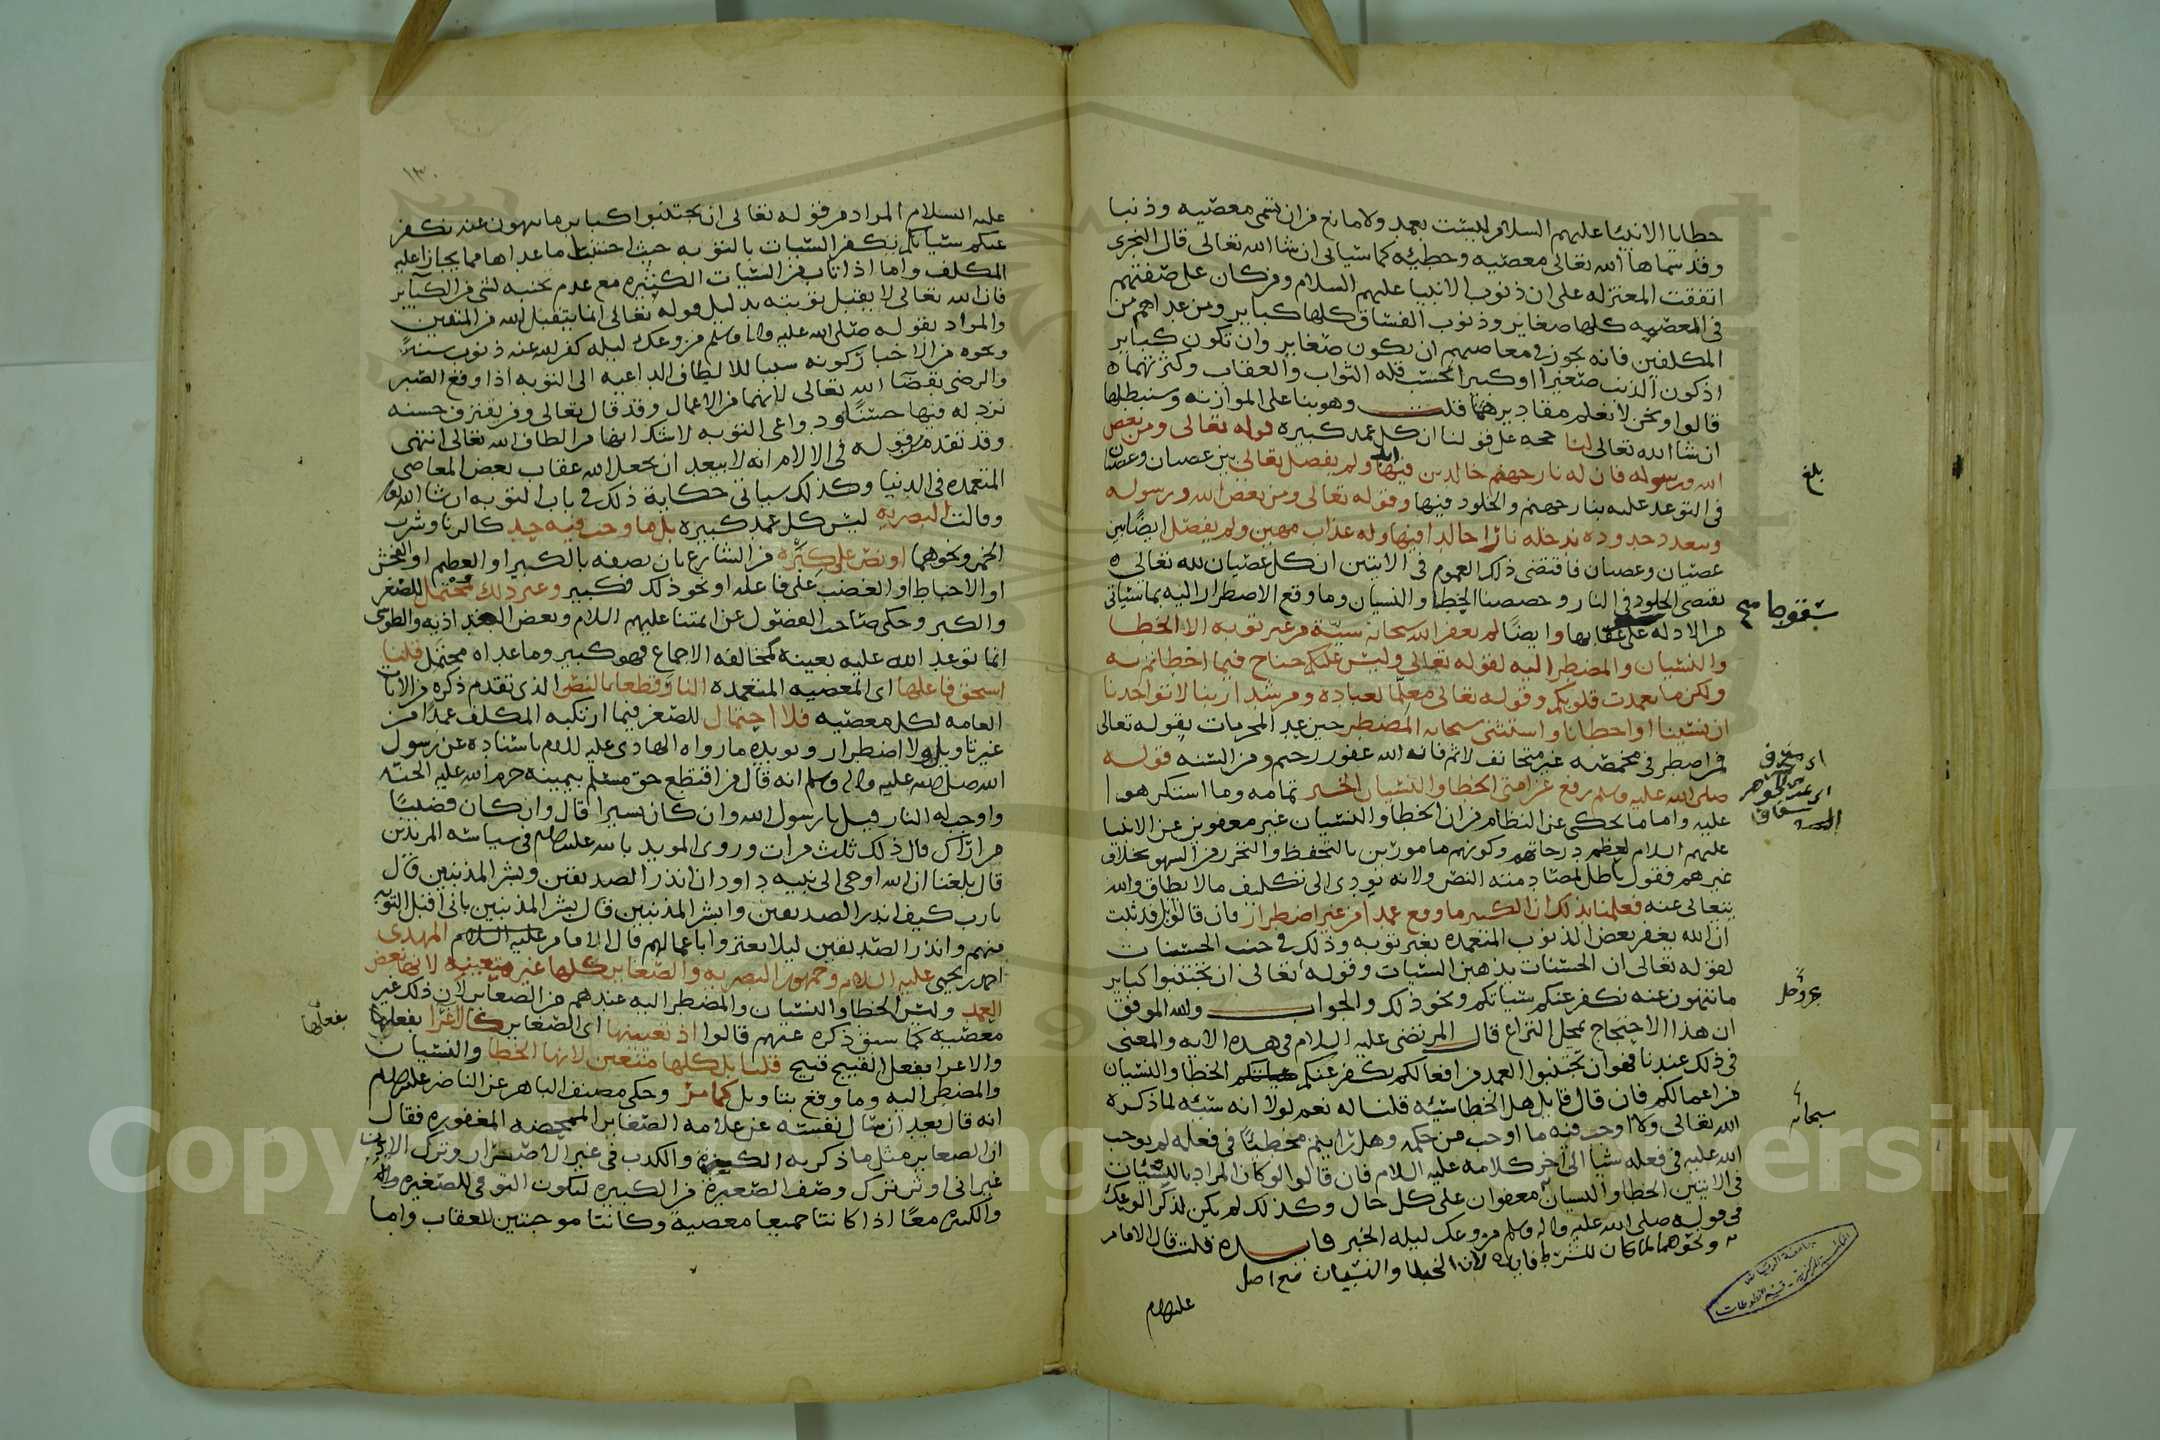 خطايا الانبيا عليهم السلام ليست بعمد ولا مانع من ان تسمى معصيه وذنبا
وقد سماها الله تعالى معصيه وخطيه كما سياتي ان شا الله تعالى قال النجرى
اتفقت المعتزله على ان ذنوب الانبيا عليهم السلام ومن كان على صفتهم
في المعصيه كلها صغاير وذنوب الفساق كلها كباير ومن عداهم من
المكلفين فانه يجوز في معاصيهم ان يكون صغاير وان تكون كباير
اذ كون الذنب صغيرا او كبيرا بحسب قله الثواب والعقاب وكثرتهما
قالوا ونحن لا نعلم مقاديرهما قلت وهو بنا على الموازنه وسنبطلها
ان شا الله تعالى لنا حجه على قولنا ان كل عمد كبيره قوله تعالى ومن يعص
الله ورسوله فان له نار جهنم خالدين فيها ابدا ولم يفصل تعالى بين عصيان وعصيان
في التوعد عليه بنار جهنم والخلود فيها وقوله تعالى ومن يعص الله ورسوله
ويتعد حدوده يدخله نارا خالدا فيها وله عذاب مهين ولم يفصل ايضا بين
عصيان وعصيان فاقتضى ذلك العموم في الايتين ان كل عصيان لله تعالى
يقتضى الخلود في النار وخصصنا الخطا والنسيان وما وقع الاضطرار اليه بما سياتي
من الادله على وايضا لم يغفر الله سبحانه سيئه من غير توبه الا الخطا
والنسيان والمضطر اليه لقوله تعالى وليس عليكم جناح فيما اخطاتم به
ولكن ما تعمدت قلوبكم وقوله تعالى معلما لعباده ومرشدا ربنا لا تواخذنا
ان نسينا او اخطانا واستثنى سبحانه المضطر حين عد المحرمات بقوله تعالى
فمن اضطر في مخمصه غير متجانف لاثم فان الله غفور رحيم ومن السنه قوله
صلى الله عليه وسلم رفع عن امتى الخطا والنسيان الخبر تمامه وما استكرهوا
عليه واما ما يحكى عن النظام من ان الخطا والنسيان غير معفوين عن الانبيا
عليهم السلام لعظم درجاتهم وكونهم مامورين بالتحفظ والتحرز من السهو بخلاف
غيرهم فقول باطل لمصادمته النص ولانه يودى الى تكليف ما لا يطاق والله
يتعالى عنه فعلمنا بذلك ان الكبير ما وقع عمدا من غير اضطرار فان قالوا بل قد ثبت
ان الله يغفر بعض الذنوب المتعمده بغير توبه وذلك في جنب الحسنات
لقوله تعالى ان الحسنات يذهبن السيات وقوله تعالى ان تجتنبوا كباير
ما تنهون عنه نكفر عنكم سياتكم ونحو ذلك والجواب والله الموفق
ان هذا الاحتجاج بمحل النزاع قال المرتضى عليه السلام في هذه الايه والمعنى
في ذلك عندنا فهو ان تجتنبوا العمد من افعالكم نكفر عنكم الخطا والنسيان
من اعمالكم فان قال قايل هل الخطا سيئه قلنا له نعم لولا انه سيئه لما ذكره
الله تعالى ولا اوجب فيه ما اوجب من حكمه وهل رايتم مخطئا في فعله لم يوجب
الله عليه في فعله شيا الى اخر كلامه عليه السلام فان قالوا لو كان المراد بالسيئات
في الايتين الخطا والنسيان معفوان على كل حال وكذلك لم يكن لذكر الوعك
في قوله صلى الله عليه واله وسلم من وعك ليله الخبر فايده قلت قال الامام
ونحوهما لما كان للشرط فايده لان الخطا والنسيان صح اصل
عليه السلام
بلغ
سبحانه
١٣٠
عليه السلام المراد من قوله تعالى ان تجتنبوا كباير ما تنهون عنه نكفر
عنكم سياتكم نكفر السيات بالتوبه حيث اجتنبت ما عداها مما يجازا عليه
المكلف واما اذا تاب من السيات الكثيره مع عدم تجنبه لشى من الكباير
فان الله تعالى لا يقبل توبته بدليل قوله تعالى انما يتقبل الله من المتقين
والمراد بقوله صلى الله عليه واله وسلم من وعك ليله كفر الله عنه ذنوب سنه
ونحوه من الاخبار كونه سببا للالطاف الداعيه الى التوبه اذا وقع الصبر
والرضى بقضا الله تعالى لانهما من الاعمال وقد قال تعالى ومن يقترف حسنه
نزد له فيها حسنا ودواعى التوبه لا شك انها من الطاف الله تعالى انتهى
وقد تقدم من قوله في الالام انه لا يبعد ان يجعل الله عقاب بعض المعاصي
المتعمده في الدنيا وكذلك سياتي حكاية ذلك في باب التوبه ان شا الله
وقالت البصريه ليس كل عمد كبيره بل ما وجب فيه حد كالزنا وشرب
الخمر ونحوهما او نص على كبره من الشارع بان يصفه بالكبير او العظيم او الفحش
او الاحباط او الغضب على فاعله او نحو ذلك فكبير وغير ذلك محتمل للصغر
والكبر وحكى صاحب الفصول عن ائمتنا عليهم السلام وبعض البغداذيه والطوسى
انما توعد الله عليه بعينه كمخالفه الاجماع فهو كبير وما عداه محتمل قلنا
استحق فاعلها اى المعصيه المتعمده النار قطعا بالنص الذى تقدم ذكره من الايات
العامه لكل معصيه فلا احتمال للصغر فيما ارتكبه المكلف عمدا من
غير تاويل ولا اضطرار ويويده ما رواه الهادى عليه السلم باسناده عن رسول
الله صلى الله عليه واله وسلم انه قال من اقتطع حق مسلم بيمينه حرم الله عليه الجنه
واوجب له النار قيل يا رسول الله وان كان يسيرا قال وان كان قضيبا
من اراك قال ذلك ثلث مرات وروى المويد بالله عليه السلم في سياسه المريدين
قال بلغنا ان الله اوحى الى نبيه داود ان انذر الصديقين وبشر المذنبين قال
يارب كيف انذر الصديقين وابشر المذنبين قال بشر المذنبين بانى اقبل التوبه
منهم وانذر الصديقين ليلا يغتروا باعمالهم قال الامام المهدى
احمد بن يحيى عليه السلام وجمهور البصريه والصغاير كلها غير متعينه لانها بعض
العمد وليس الخطا والنسيان والمضطر اليه عندهم من الصغاير لان ذلك غير
معصيه كما سبق ذكره عنهم قالوا اذ تعيينها اى الصغاير كالاغرا بفعلها
والاغرا بفعل القبيح قبيح قلنا بل كلها متعين لانها الخطا والنسيان
والمضطر اليه وما وقع بتاويل كما مر وحكى مصنف الباهر عن الناصر عليه السلم
انه قال بعد ان سال نفسه عن علامه الصغاير الممحصه المغفوره فقال
ان الصغاير مثل ما ذكر به والكذب في غير الاضرار وترك
غير انى اوثر ترك وصف الصغيره من الكبيره ليكون التوقى للصغيره
والكبيره معا اذا كانتا جميعا معصية وكانتا موجبتين للعقاب واما
بفعلها